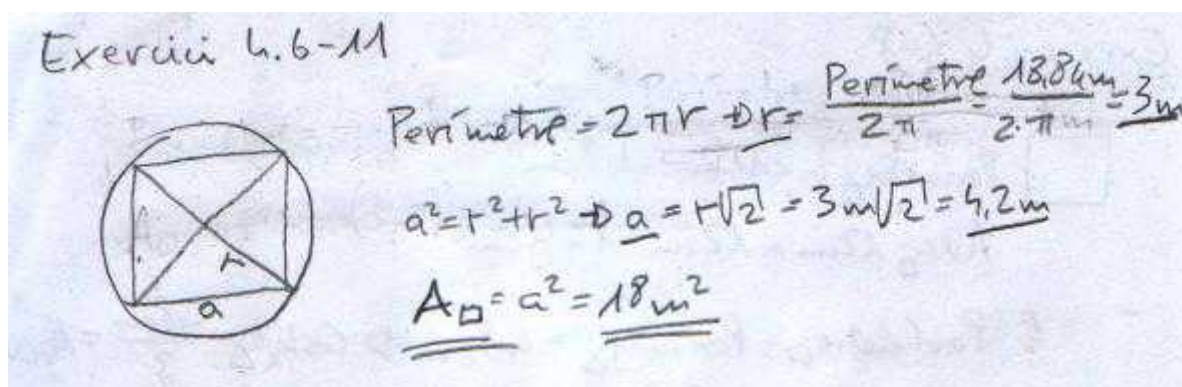 Exercici 4.6-11
Perímetre = 2πr → r = Perímetre/2π = 18,84m/2·π = 3m
a²=r²+r² → a = r√2 = 3m√2 = 4,2m
A□ = a² = 18m²
r
a